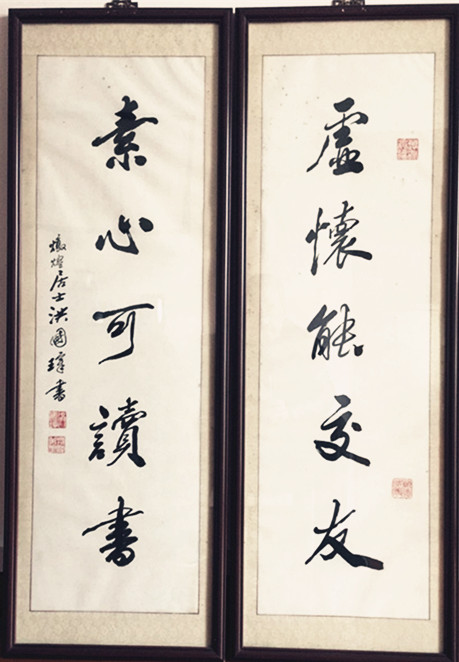 虛懷能交友
素心可讀書
燉煌居士洪國璋書